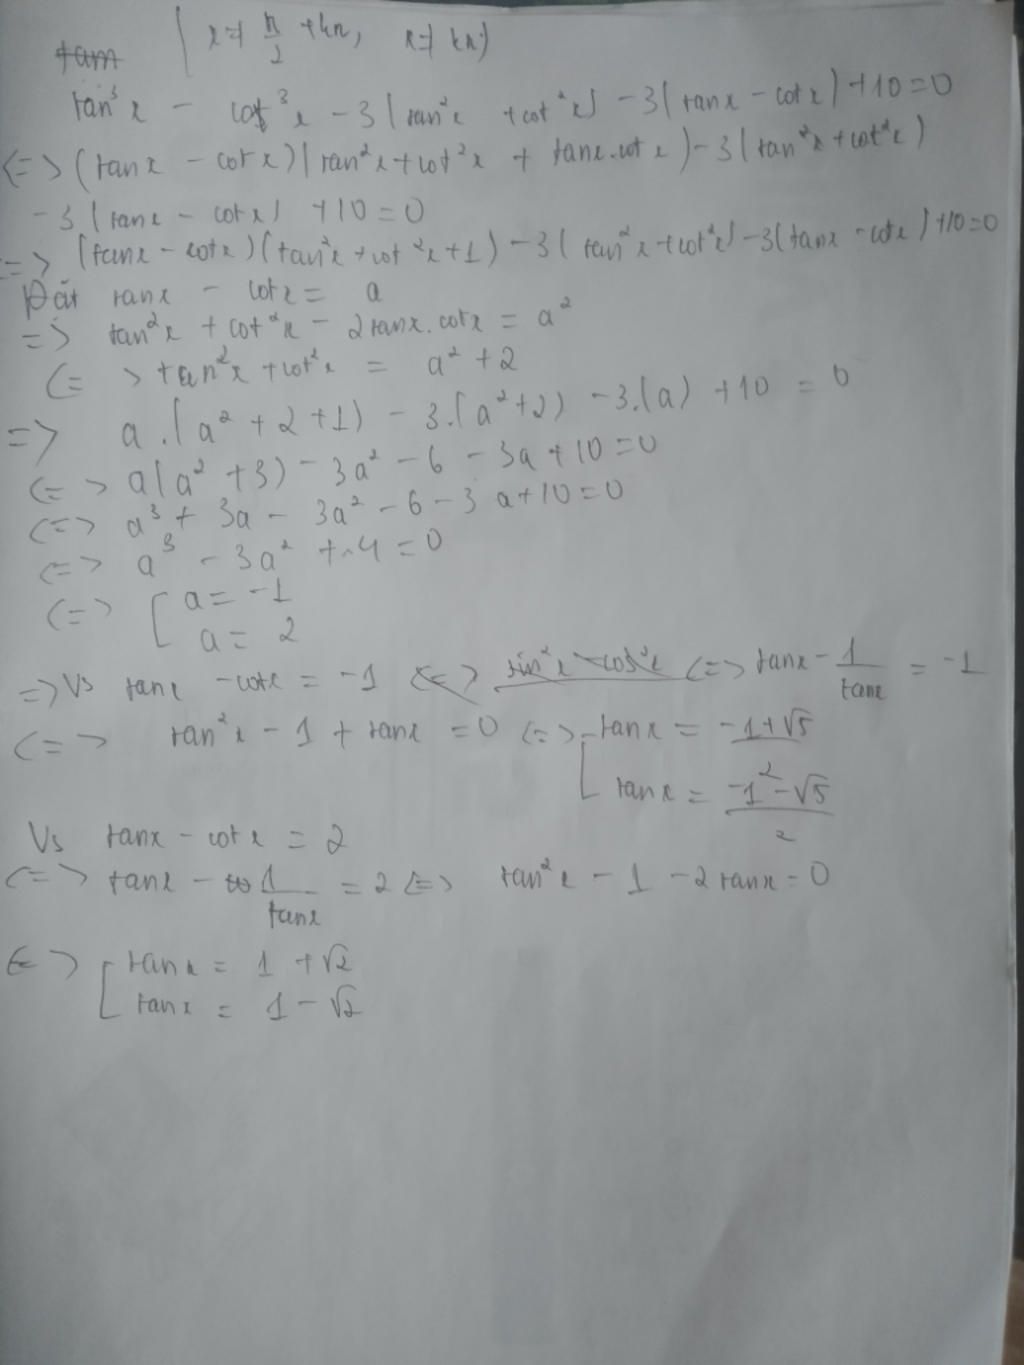 tam ( x ≠ π/2 + kπ, x ≠ kπ)
tan³x - cot³x - 3(tan²x + cot²x) - 3(tanx - cotx) + 10 = 0
<=> (tanx - cotx)(tan²x + cot²x + tanx.cotx) - 3(tan²x + cot²x)
- 3(tanx - cotx) + 10 = 0
=> (tanx - cotx)(tan²x + cot²x + 1) - 3(tan²x + cot²x) - 3(tanx - cotx) + 10 = 0
Đặt tanx - cotx = a
=> tan²x + cot²x - 2tanx.cotx = a²
<=> tan²x + cot²x = a² + 2
=> a.(a² + 2 + 1) - 3.(a² + 2) - 3.(a) + 10 = 0
<=> a(a² + 3) - 3a² - 6 - 3a + 10 = 0
<=> a³ + 3a - 3a² - 6 - 3a + 10 = 0
<=> a³ - 3a² + 4 = 0
<=> [ a = -1
a = 2
=> Vs tanx - cotx = -1 <=> sin²x - cos²x <=> tanx - 1/tanx = -1
<=> tan²x - 1 + tanx = 0 <=> [ tanx = -1+√5/2
tanx = -1-√5/2
Vs tanx - cotx = 2
<=> tanx - 1/tanx = 2 <=> tan²x - 1 - 2tanx = 0
<=> [ tanx = 1 + √2
tanx = 1 - √2